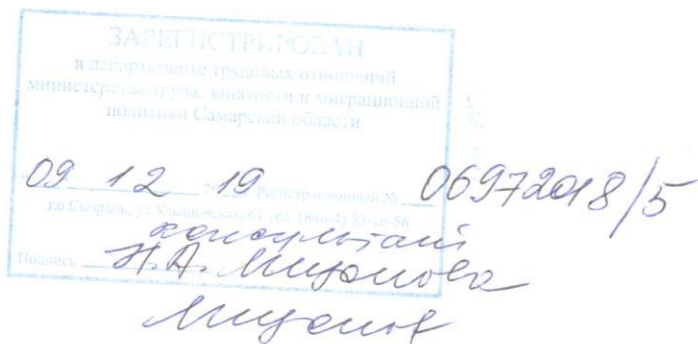 ЗАРЕГИСТРИРОВАН
в департаменте трудовых отношений
министерства труда, занятости и миграционной
политики Самарской области
09 12 19 Регистрационный № 06972018/5
г.о.Сызрань, ул.Ульяновская, 61 тел. (846-4) 33-16-56
консультант
Подпись Н.А. Миронова